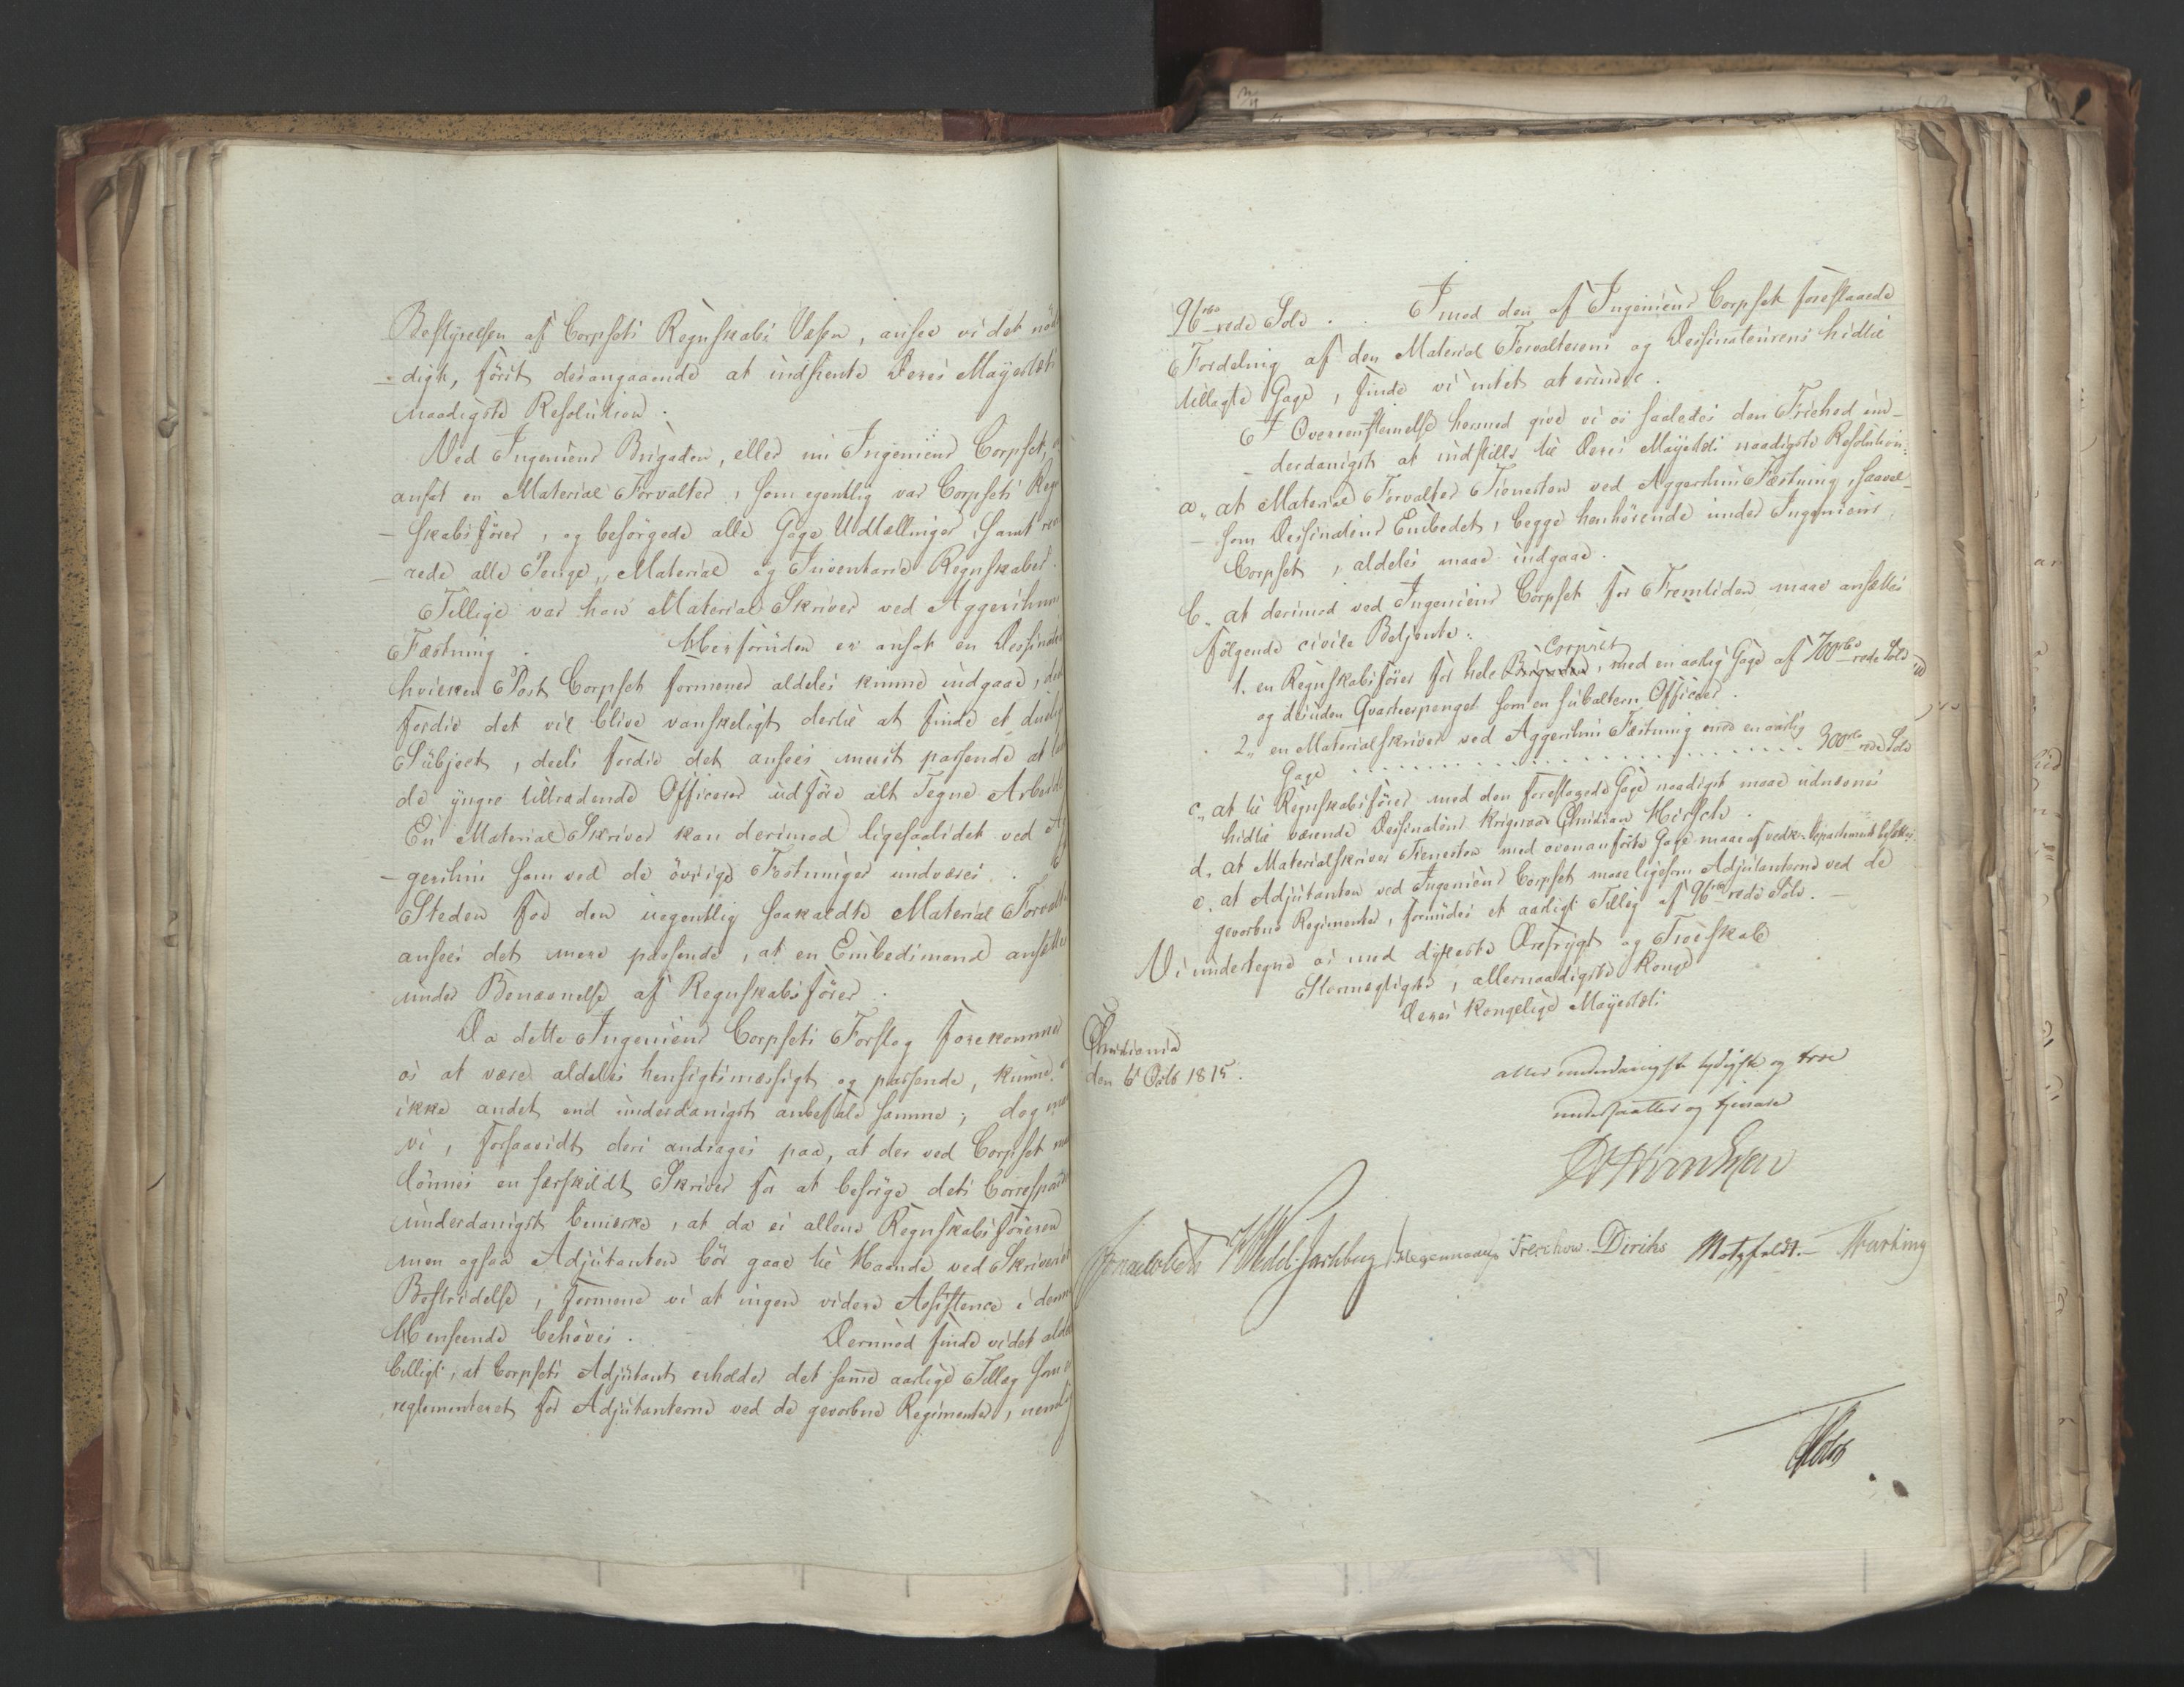 Bestyrelsen af Corpsets Regnskabs Væsen, ansee vi det nöd
-digt, först desangaaende at indhente Deres Mayestæts
naadigste Resolution.
Ved Ingenieur Brigaden, eller nu Ingenieur Corpset, er
ansat en Material Forvalter, som egentlig var Corpsets Regn
-skabsförer, og besörgede alle Gage Udtællinger, samt
rede alle Penge, Material og Inventarie Regnskaber.
Tillige var han Material Skriver ved Aggershuus
Fæstning. Herforuden er ansat en Dessinateur
hvilken Post Corpset formener aldeles kunne indgaae, deels
fordie det vil blive vanskeligt dertil at finde et dueligt
Subject, deels fordie det ansees meest passende at lade
de yngre tiltrædende Officerer udföre alt Tegne Arbeide
En Material Skriver kan derimod ligesaalidet ved Ag
-gershus som ved de övrige Fæstninger undværes. I
Steden for den uegentlig saakaldte Material Forvalter
ansees det mere passende, at en Embedsmand ansættes
under Benævnelse af Regnskabsförer.
Da dette Ingenieur Corpsets Forslag forekommer
os at være aldeles hensigtsmæssigt og passende, kunne vi
ikke andet end underdanigst anbefale samme; dog maae
vi, forsaavidt deri andrages paa, at der ved Corpset maa
lönnes en særskildt Skriver for at besörge dets Correspondence
underdanigst bemærke, at da ei allene Regnskabsföreren
men ogsaa Adjutanten bör gaae til Haande ved Skriveriets
Bestridelse, formene vi at ingen videre Assistence i denne
Henseende behöves. Derimod finde vi det aldeles
billigt, at Corpsets Adjutant erholder det samme aarlige Tillæg som er
reglementeret for Adjutanterne ved de gevorbne Regimenter, nemlig
96 rbd rede Sölv. Imod den af Ingenieur Corpset foreslaaede
Fordeling af den Material Forvalterens og Dessinateurens hidtil
tillagte Gage, finde vi intet at erindre.
I Overeenstemelse hermed give vi os saaledes den Frihed un-
-derdanigst at indstille til Deres Mayestæts naadigste Resolution:
a, at Material Forvalter Tienesten ved Aggershus Fæstning, saavel
-som Dessinateur Embedet, begge henhörende under Ingenieur
Corpset, aldeles maae indgaae.
b, at derimod ved Ingenieur Corpset for Fremtiden maae ansættes
fölgende civile Betjente:
Corpset
1. en Regnskabsförer for hele Brigaden, med en aarlig Gage af 700 rbd rede Sölv
og desuden Qvarteerpenge som en subaltern Officeer.
2, en Materialskriver ved Aggershus Fæstning med en aarlig
Gage . . . . . . . . . . . . . . . . 300 rbd rede Sölv
c, at til Regnskabsförer med den foreslagede Gage naadigst maae udnævnes
hidtil værende Dessinateur Krigsraad Christian Hirsch.
d. at Materialskriver Tienesten med ovenanförte Gage maae af vedk. Departement besættes
e. at Adjutanten ved Ingenieur Corpset maae ligesom Adjutanterne ved de
gevorbne Regimenter, forundes et aarligt Tillæg af 96 rbd rede Sölv.
Vi undertegne os med dybeste Ærefrygt og Troeskab
Stormægtigste, allernaadigste Konge
Deres Kongelige Mayestæts
Christiania
den 6t Octb 1815.
aller underdanigste lydigste og troe
undersaatter og tjenere
Wedel-Jarlsberg Hegermann Treschow Diriks Motzfeldt. —
Holst